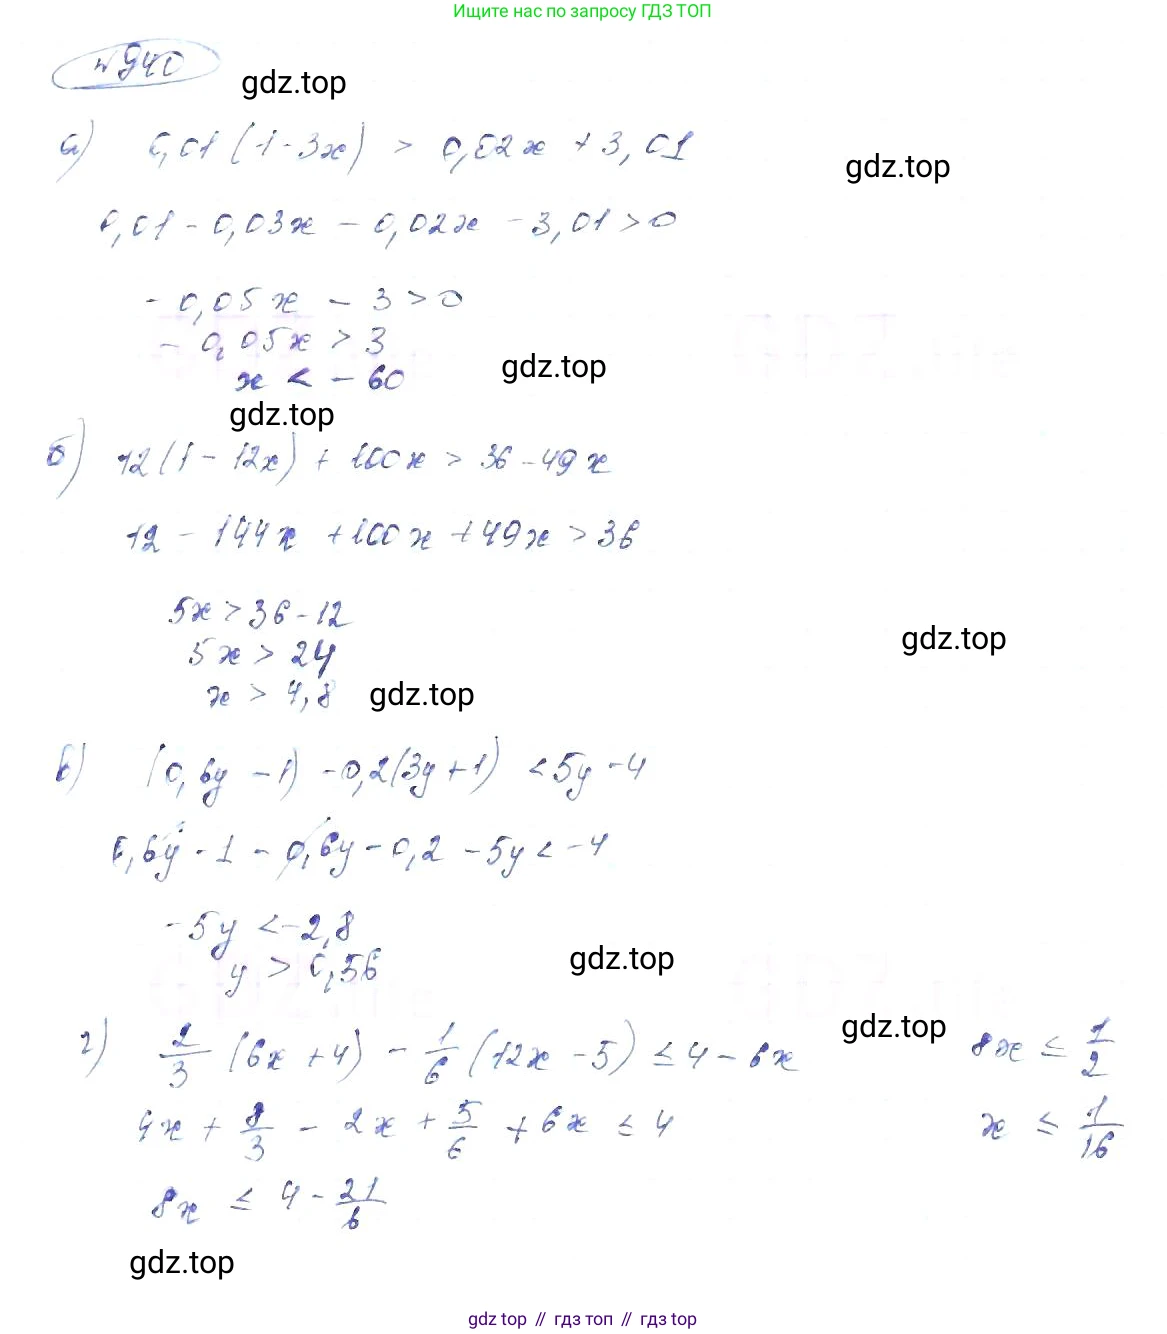 Ищите нас по запросу ГДЗ ТОП
№940
gdz.top
а) 0,01(1-3x) > 0,02x + 3,01
gdz.top
0,01 - 0,03x - 0,02x - 3,01 > 0
- 0,05x - 3 > 0
- 0,05x > 3
gdz.top
x < - 60
gdz.top
б) 12(1 - 12x) + 100x > 36 - 49x
12 - 144x + 100x + 49x > 36
5x > 36 - 12
gdz.top
5x > 24
x > 4,8
gdz.top
в) (0,6y - 1) - 0,2(3y + 1) < 5y - 4
0,6y - 1 - 0,6y - 0,2 - 5y < -4
-5y < -2,8
gdz.top
y > 0,56
gdz.top
г) 2/3 (6x + 4) - 1/6 (12x - 5) ≤ 4 - 6x
8x ≤ 1/2
4x + 8/3 - 2x + 5/6 + 6x ≤ 4
x ≤ 1/16
8x ≤ 4 - 21/6
gdz.top
gdz top // гдз топ // гдз top